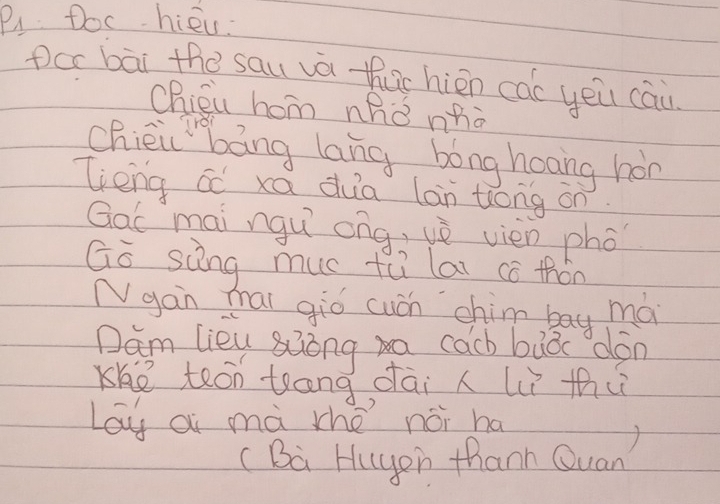 P1. Đọc - hiểu:
Đọc bài thơ sau và thực hiện các yêu cầu.
Chiều hôm nhớ nhà
Chiều trời bảng lảng bóng hoàng hôn
Tiếng ốc xa đưa lẫn trống đồn.
Gác mái ngư ông, về viễn phố
Gõ sừng mục tử lại cô thôn
Ngàn mai gió cuốn chim bay mỏi
Dặm liễu sương xa cách bước dồn
Kẻ trốn trang đài k lữ thứ
Lấy ai mà kể nỗi hà
(Bà Huyện Thanh Quan)